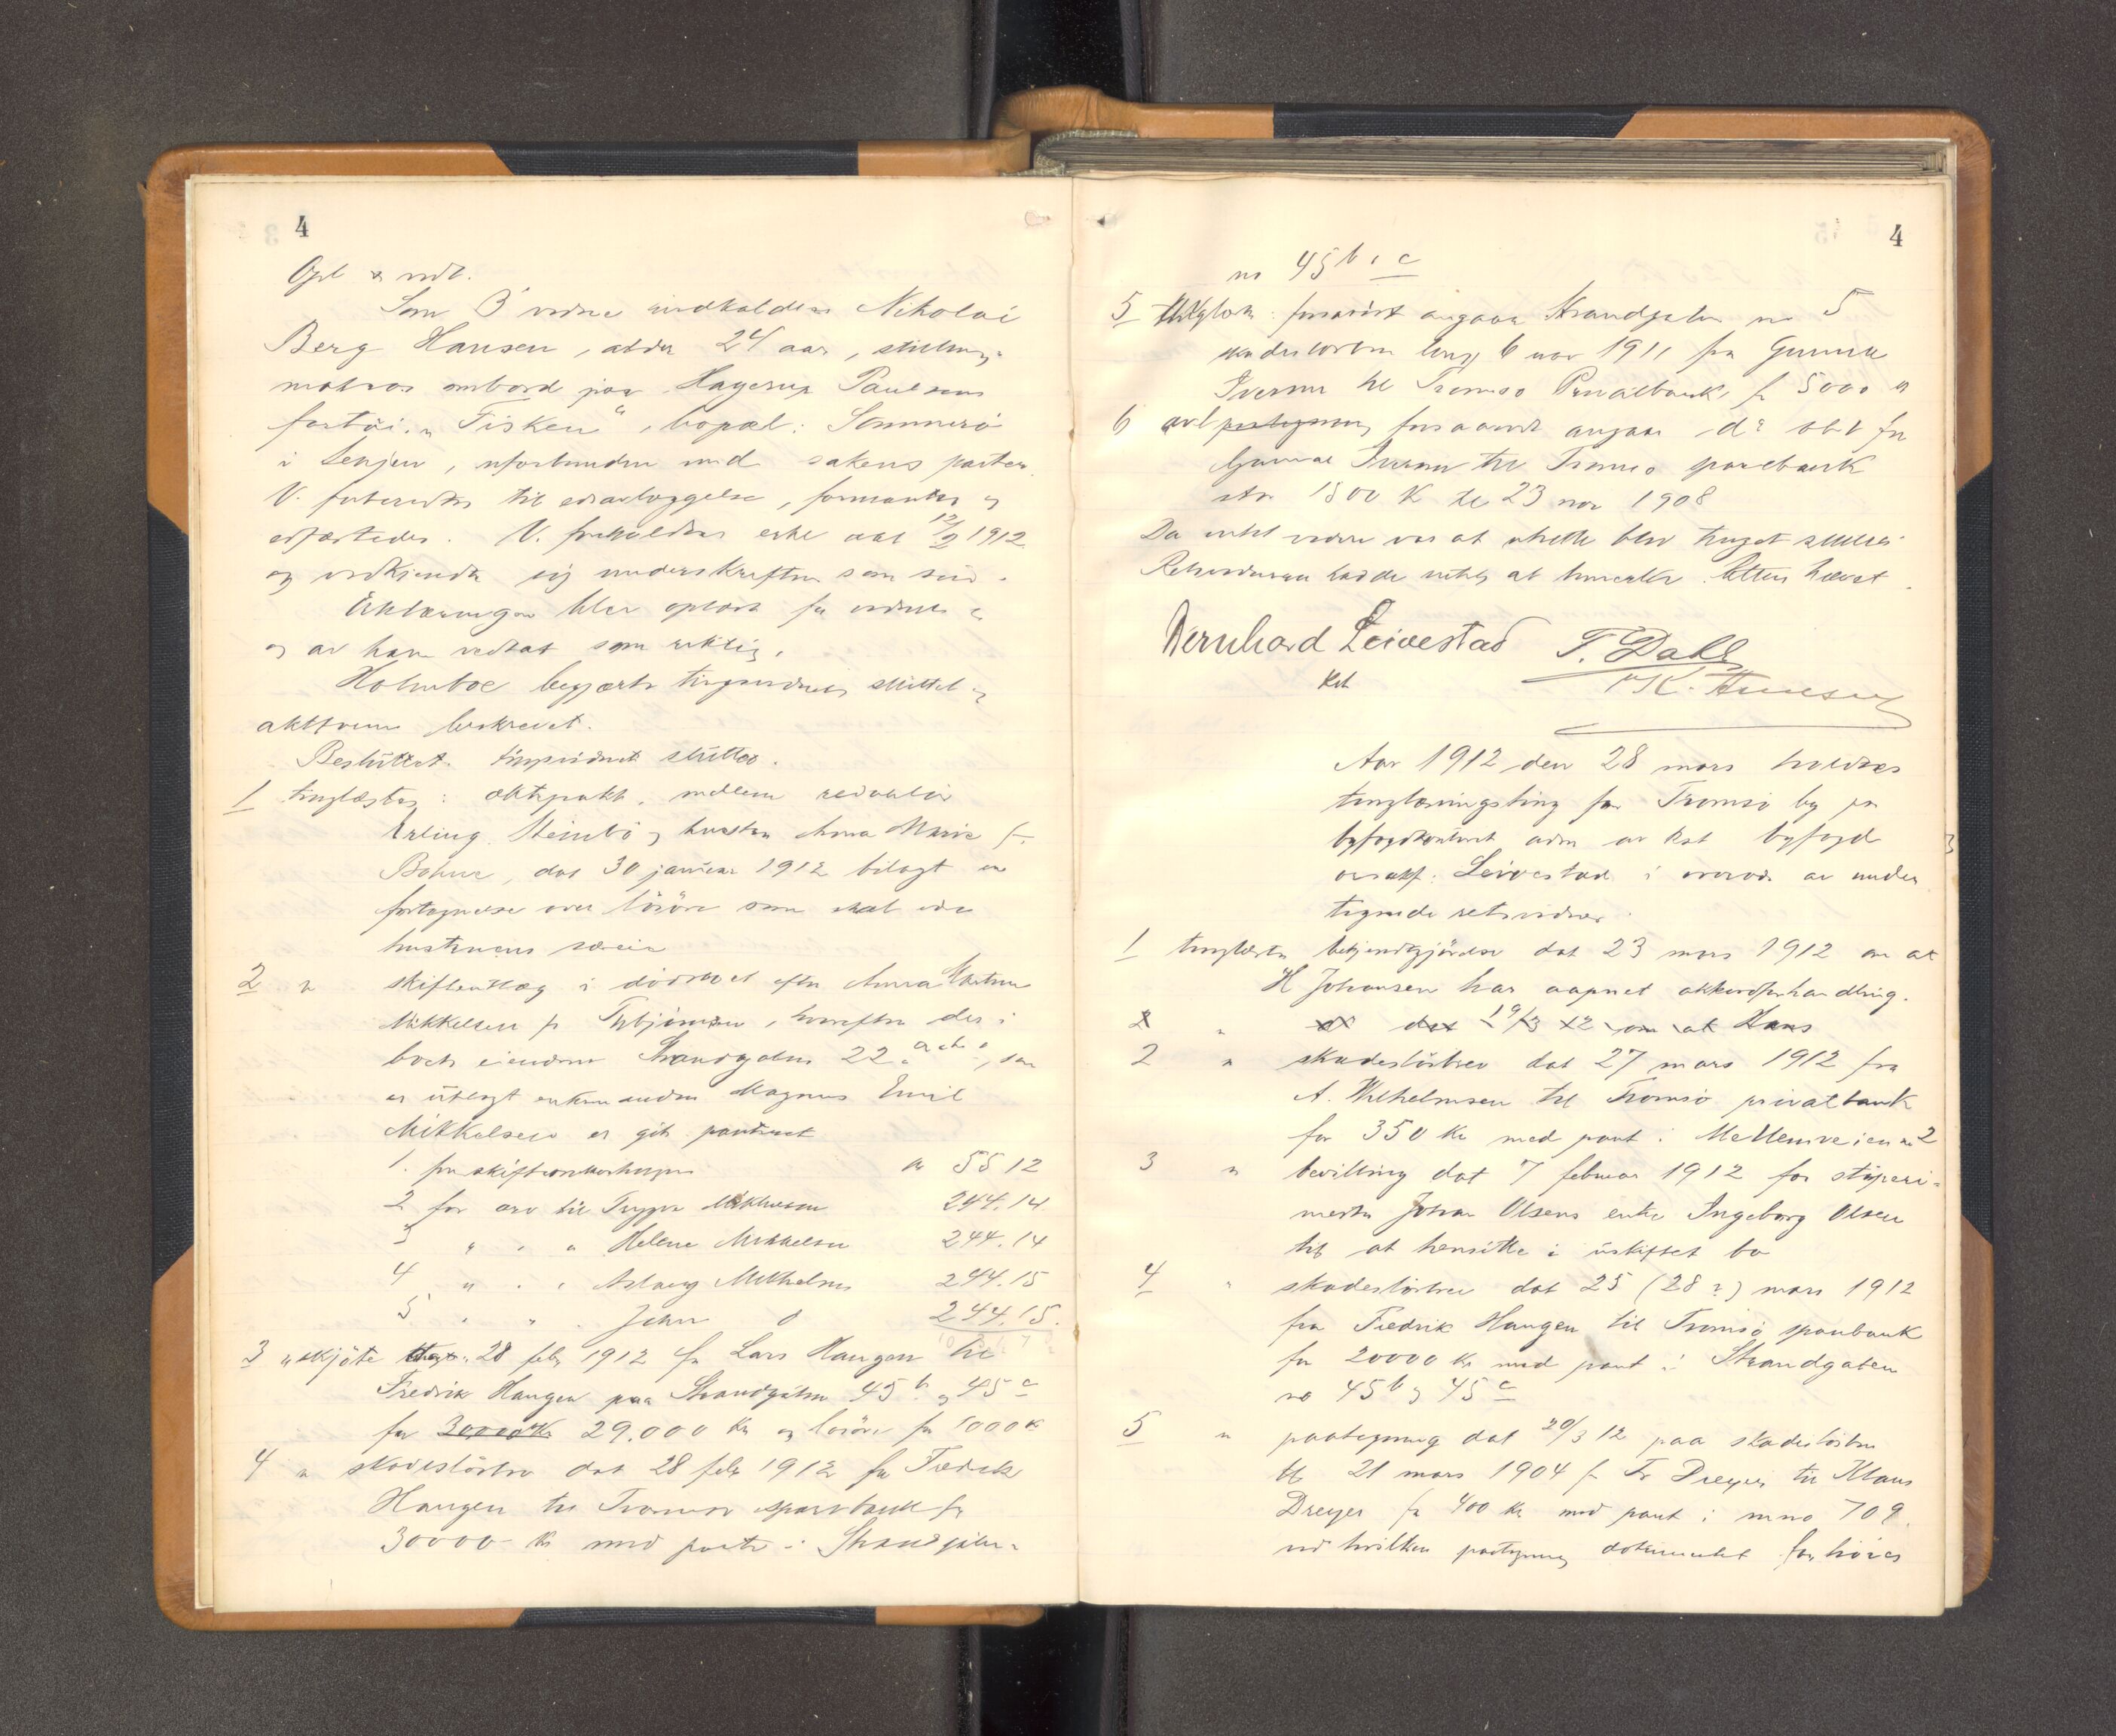 4
Opl & vedt.
Som 3' vidne indkaldes Nikolai
Berg Hansen, alder 24 aar, stilling:
matros ombord paa Hagerup Paulsens
fartøi „Tisken“, bopæl: Sommerø
i Lenjen, uforbunden med sakens parter.
V. forberedtes til edsavlæggelse, formantes og
edfæstedes. V. foreholdtes erkl. dat 12/2 1912
og vedkjendte sig underskriften som sin.
Erklæringen blev oplæst for vidnet
og av ham vedtat som riktig.
Holmboe begjærte tingsvidnet sluttet og
aktsvem beskrevet.
Besluttet tingsvidnet sluttes.
1 tinglæstes: ektepakt mellem redaktør
Erling Steinbø og hustru Anna Marie f.
Bohne, dat 30 januar 1912 bilagt en
fortegnelse over løsøre som skal være
hustruens særeie
2 " skifteutlæg i dødsboet efter Anna Martine
Mikkelsen f. Thbjørnsen, hvorefter der i
boets eiendom Strandgaten 22 , som
er utlagt enkemanden Magnus Emil
Mikkelsen er git panteret
1. for skifteomkostninger kr 55 12
2 for arv til Trygve Mikkelsen 244.14
3 " " " Helene Mikkelsen 244.14
4 " " " Aslaug Mikkelsen 244.15
5 " " " John d 244.15.
3 " skjøte 28 febr 1912 fra Lars Haugen til
Fredrik Haugen paa Strandgaten 45 b og 45 c
for 30000 Kr 29.000 kr og løsøre for 1000 kr
4 " skadesløsbrev dat 28 febr 1912 fra Fredrik
Haugen til Tromsø sparebank for
30000 kr med pant i Strandgaten
4
no 45 b & c
5 forsaavidt angaar Strandgaten no 5
skadesløsbrev tingl 6 nov 1911 fra Gunnar
Iversen til Tromsø Privatbank for 5000 kr
6 avl paategning forsaavidt angaar do obl fra
Gunnar Iversen til Tromsø sparebank
stor 1800 K tl 23 nov 1908
Da intet videre var at utrette blev tinget sluttet.
Retsvidnerne hadde intet at bemerke. Retten hævet.
Bernhard Leivestad T. Dahl
kst K. Hansen
Aar 1912 den 28 mars holdtes
tinglæsningsting for Tromsø by paa
byfogdkontoret adm av kst byfogd
oversakf. Leivestad i overvær av under
tegnede retsvidner.
1 tinglæstes bekjendtgjørelse dat 23 mars 1912 om at
H Johansen har aapnet akkordforhandling.
2 " dat 19/3 12 om at Hans
2 " skadesløsbrev dat 27 mars 1912 fra
A. Wilhelmsen til Tromsø privatbank
for 350 Kr med pant i Mellemveien no 2
3 " bevilling dat 7 februar 1912 for støperi-
mester Johan Olsens enke Ingeborg Olsen
til at hensitte i uskiftet bo
4 " skadesløsbrev dat 25 (28?) mars 1912
fra Fredrik Haugen til Tromsø sparebank
for 20000 Kr med pant i Strandgaten
no 45 b og 45 c
5 " paategning dat 20/3 12 paa skadesløsbrev
tl 21 mars 1904 fra Fr Dreyer til Klaus
Dreyer for 400 kr med pant i mno 709.
ved hvilken paategning dokumentet forhøies